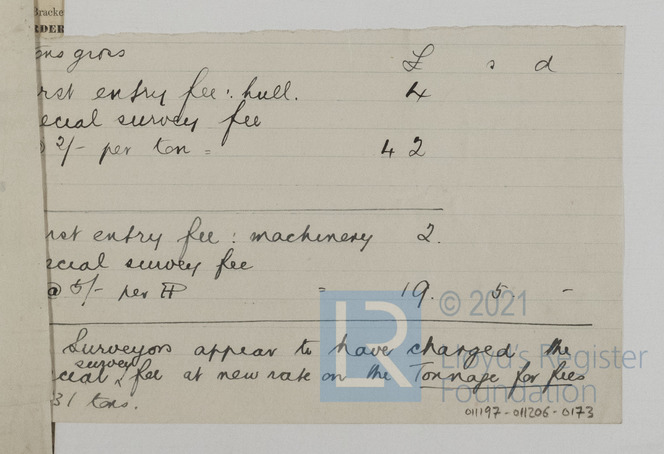 Bracke
RDER
ons gross
£ s d
rst entry fee: hull. 4
ecial survey fee
2/- per ton = 42
rst entry fee: machinery 2.
ecial survey fee
@ 5/- per HP = 19. 5 -
Surveyors appear to have charged the
ecial survey fee at new rate on the Tonnage for fees
31 tons.
© 2021
LR
Lloyd's Register
Foundation
011197-011206-0173